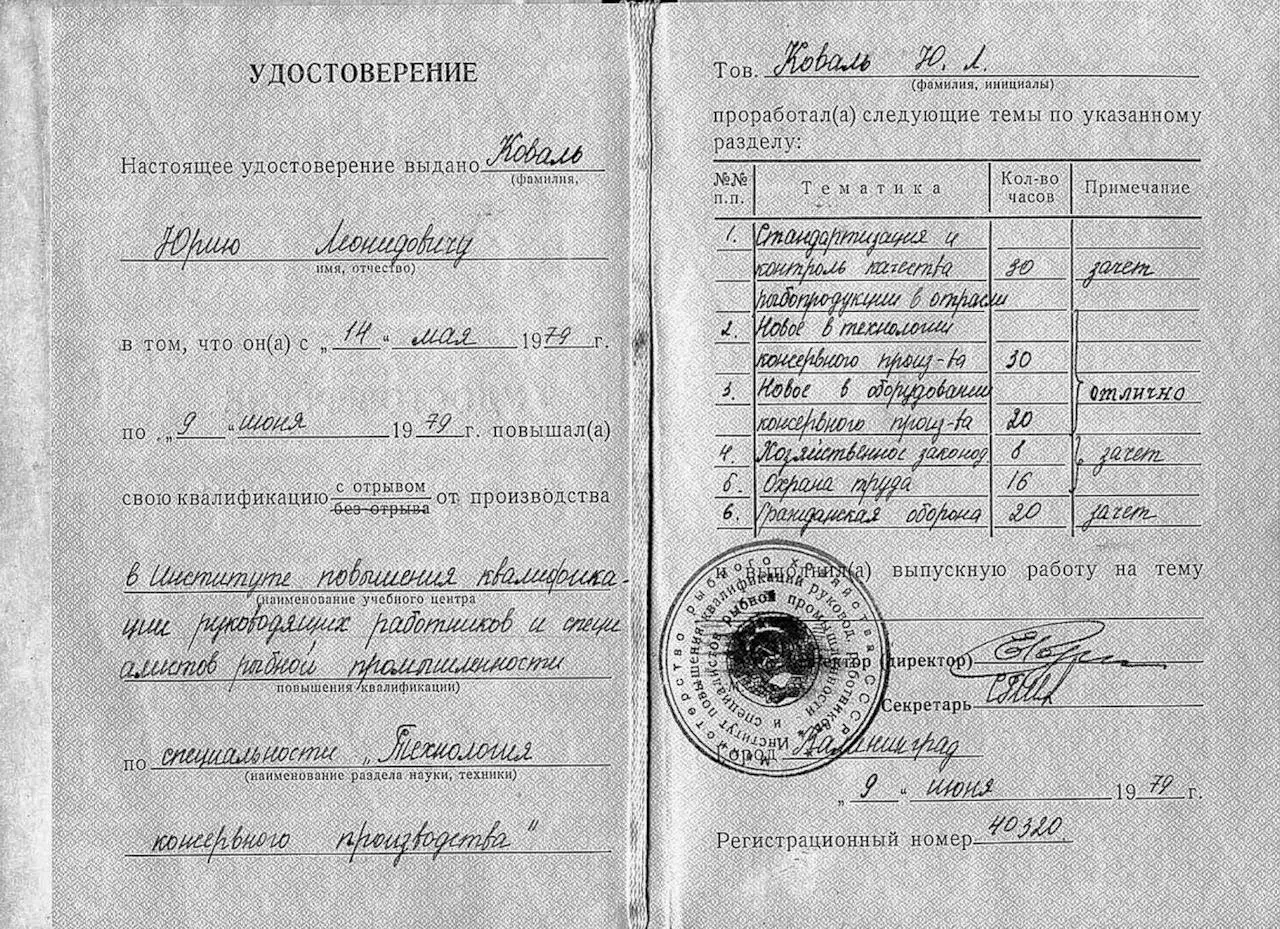 УДОСТОВЕРЕНИЕ
Настоящее удостоверение выдано Коваль
(фамилия,
Юрию Леонидовичу
имя, отчество)
в том, что он(а) с „14" мая 1979 г.
по „9" июня 1979 г. повышал(а)
свою квалификацию с отрывом от производства
без отрыва
в Институте повышения квалифика-
(наименование учебного центра
ции руководящих работников и специ
алистов рыбной промышленности
повышения квалификации)
по специальности „Технология
(наименование раздела науки, техники)
консервного производства"
Тов. Коваль Ю. Л.
(фамилия, инициалы)
проработал(а) следующие темы по указанному
разделу:
№№ п.п. Тематика Кол-во часов Примечание
1. Стандартизация и
контроль качества 30 зачет
рыбопродукции в отрасли
2. Новое в технологии
консервного произ-ва 30
3. Новое в оборудовании отлично
консервного произ-ва 20
4. Хозяйственное законод 8 зачет
5. Охрана труда 16
6. Гражданская оборона 20 зачет
и выполнил(а) выпускную работу на тему
Ректор (директор)
Секретарь
Город Калининград
„9" июня 1979 г.
Регистрационный номер 40320
Министерство рыбного хозяйства СССР
Институт повышения квалификации руковод. работников
и специалистов рыбной промышленности